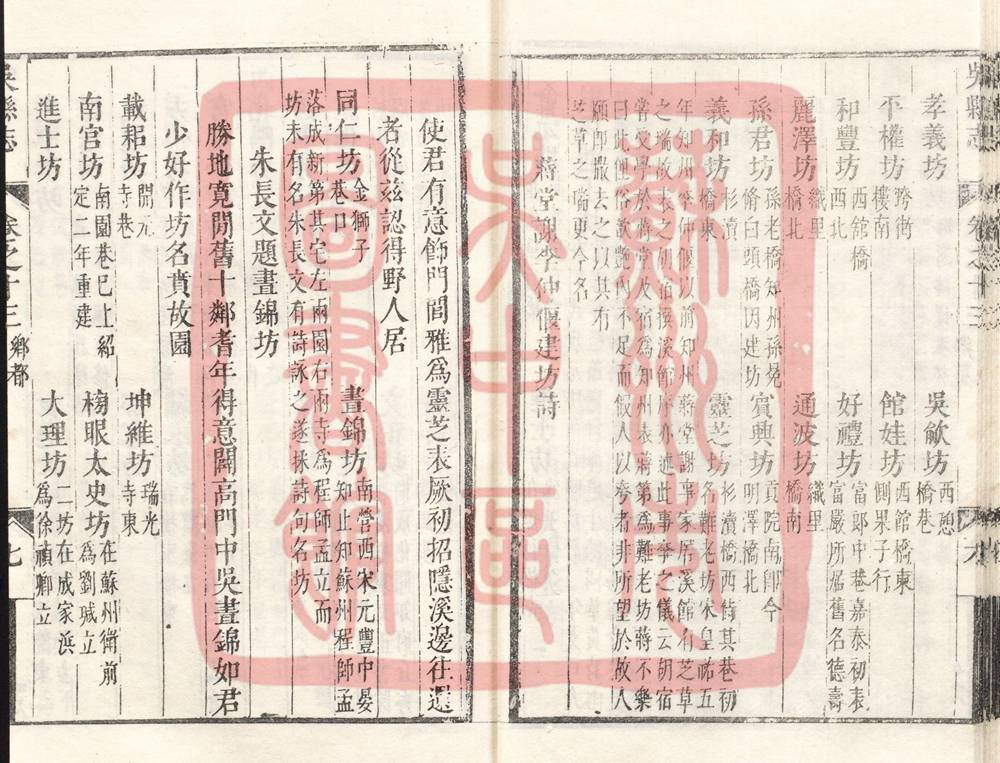 吳縣志 卷之十三 八
孝義坊 跨街 吳歈坊 西憩橋巷
平權坊 樓南 館娃坊 西館橋東側果子行
和豐坊 西館橋西北 好禮坊 富郎中巷嘉泰初表富嚴所居舊名德壽
麗澤坊 織里橋北 通波坊 織里橋南
孫君坊 孫老橋知州孫冕脩曰頭橋因建坊 賓興坊 貢院南卽今明澤橋北
義和坊 杉瀆橋東 靈芝坊 杉瀆橋西街其巷初名難老坊宋皇祐五
年知州李仲偃以前知州蔣堂謝事家居溪館有芝草
之瑞故表之胡宿溪館序亦述此事李之儀云胡宿
嘗受學於蔣堂及宿為知州表蔣第為難老坊蔣不樂
曰此俚俗歆艷內不足而假人以夸者非所望於故人
願卽撤去之以其有
芝草之瑞更今名
蔣堂謝李仲偃建坊詩
使君有意飾門閭雅為靈芝表厥初招隱溪邊往還
者從茲認得野人居
同仁坊 金獅子巷口 晝錦坊 南營西宋元豐中晏知止知蘇州程師孟
落成新第其宅左南園右南寺為程師孟立而
坊未有名朱長文有詩詠之遂抹詩句名坊
朱長文題晝錦坊
勝地寬閒舊十鄰耆年得意闢高門中吳晝錦如君
少好作坊名賁故園
載耜坊 開元寺巷 坤維坊 瑞光寺東
南宮坊 南園巷巳上紹定二年重建 榜眼太史坊 在蘇州衛前為劉瑊立
進士坊 大理坊 二坊在成家浜為徐禎卿立
吳縣志 卷之十三 鄉都 九